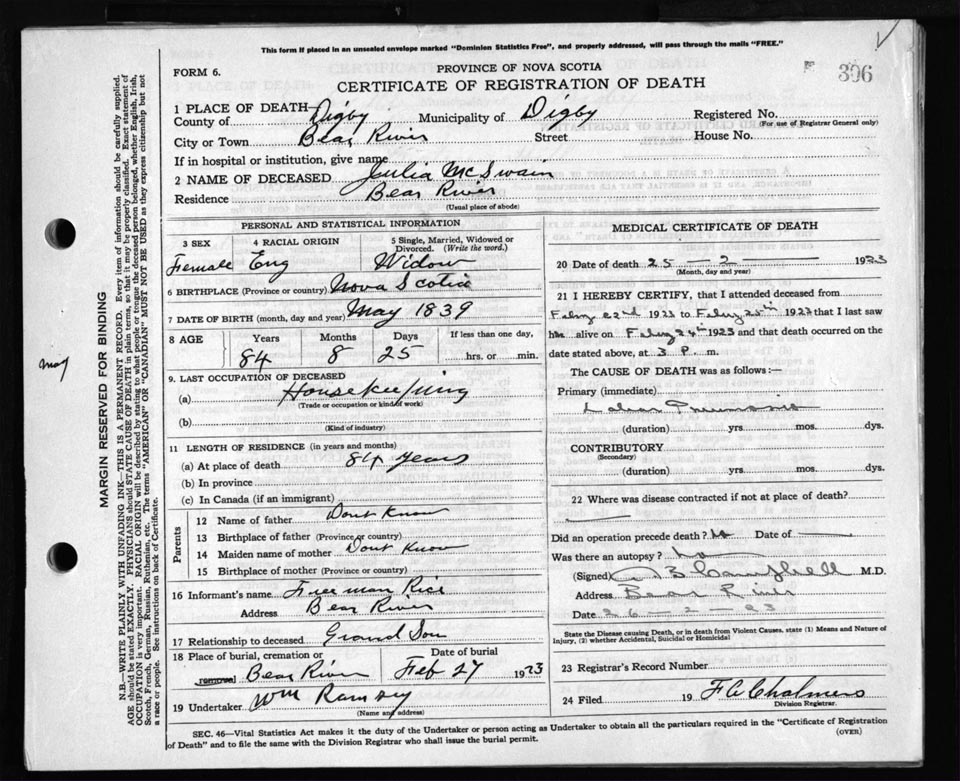 This form if placed in an unsealed envelope marked "Dominion Statistics Free", and properly addressed, will pass through the mails "FREE."
FORM 6.
PROVINCE OF NOVA SCOTIA
306
CERTIFICATE OF REGISTRATION OF DEATH
1 PLACE OF DEATH
County of Digby Municipality of Digby Registered No.
(For use of Registrar General only)
City or Town Bear River Street House No.
If in hospital or institution, give name
2 NAME OF DECEASED Julia McSwain
Residence Bear River
(Usual place of abode)
PERSONAL AND STATISTICAL INFORMATION
3 SEX 4 RACIAL ORIGIN 5 Single, Married, Widowed or Divorced. (Write the word.)
Female Eng Widow
6 BIRTHPLACE (Province or country) Nova Scotia
7 DATE OF BIRTH (month, day and year) May 1839
8 AGE Years Months Days If less than one day,
84 8 25 hrs. or min.
9. LAST OCCUPATION OF DECEASED
(a) Housekeeping
(Trade or occupation or kind of work)
(b)
(Kind of industry)
11 LENGTH OF RESIDENCE (in years and months)
(a) At place of death 84 years
(b) In province
(c) In Canada (if an immigrant)
Parents
12 Name of father Dont Know
13 Birthplace of father (Province or country)
14 Maiden name of mother Dont Know
15 Birthplace of mother (Province or country)
16 Informant's name Freeman Rice
Address Bear River
17 Relationship to deceased Grand Son
18 Place of burial, cremation or removal Date of burial
Bear River Feb 27 1923
19 Undertaker Wm Ramsey
(Name and address)
MEDICAL CERTIFICATE OF DEATH
20 Date of death 25 - 2 - 1923
(Month, day and year)
21 I HEREBY CERTIFY, that I attended deceased from
22nd 1923 to 25th 1923 that I last saw
alive on 24th 1923 and that death occurred on the
date stated above, at 3 P. m.
The CAUSE OF DEATH was as follows:—
Primary (immediate)
Lobar Pneumonia
(duration) yrs. mos. dys.
CONTRIBUTORY
(Secondary)
(duration) yrs. mos. dys.
22 Where was disease contracted if not at place of death?
Did an operation precede death? No Date of
Was there an autopsy? No
(Signed) Campbell M.D.
Address Bear River
Date 26-2-23
State the Disease causing Death, or in death from Violent Causes, state (1) Means and Nature of
Injury, (2) whether Accidental, Suicidal or Homicidal
23 Registrar's Record Number
24 Filed 19 Chalmers
Division Registrar.
SEC. 46—Vital Statistics Act makes it the duty of the Undertaker or person acting as Undertaker to obtain all the particulars required in the "Certificate of Registration
of Death" and to file the same with the Division Registrar who shall issue the burial permit.
(OVER)
MARGIN RESERVED FOR BINDING
N.B.—WRITE PLAINLY WITH UNFADING INK—THIS IS A PERMANENT RECORD. Every item of information should be carefully supplied.
AGE should be stated EXACTLY. PHYSICIANS should STATE CAUSE OF DEATH in plain terms, so that it may be properly classified. Exact statement of
OCCUPATION is very important. RACIAL ORIGIN will be described by stating to what people or tongue the deceased person belonged, whether English, Irish,
Scotch, French, German, Russian, Ruthenian, etc. The terms "AMERICAN" OR "CANADIAN" MUST NOT BE USED as they express citizenship but not
a race or people. See instructions on back of Certificate.